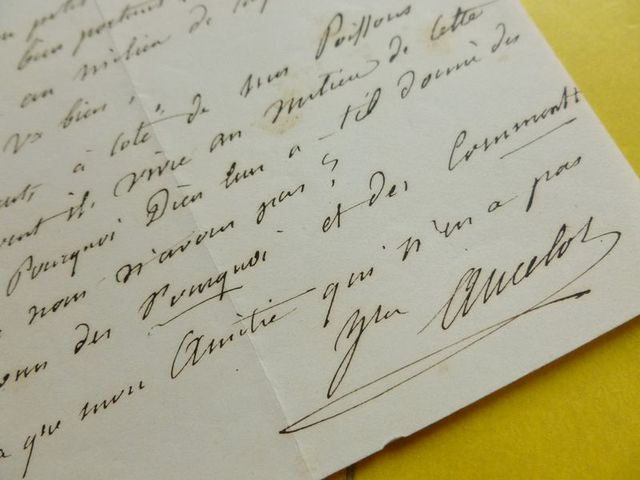 bien portant
au milieu de
vs bien,
à coté de nos Poissons
vivre au milieu de cette
Pourquoi Dieu leur a-t-il donné des
nous n'avons pas ?
des Pourquoi et des Comments
que mon Amitié qui n'en a pas
Yra Ancelot